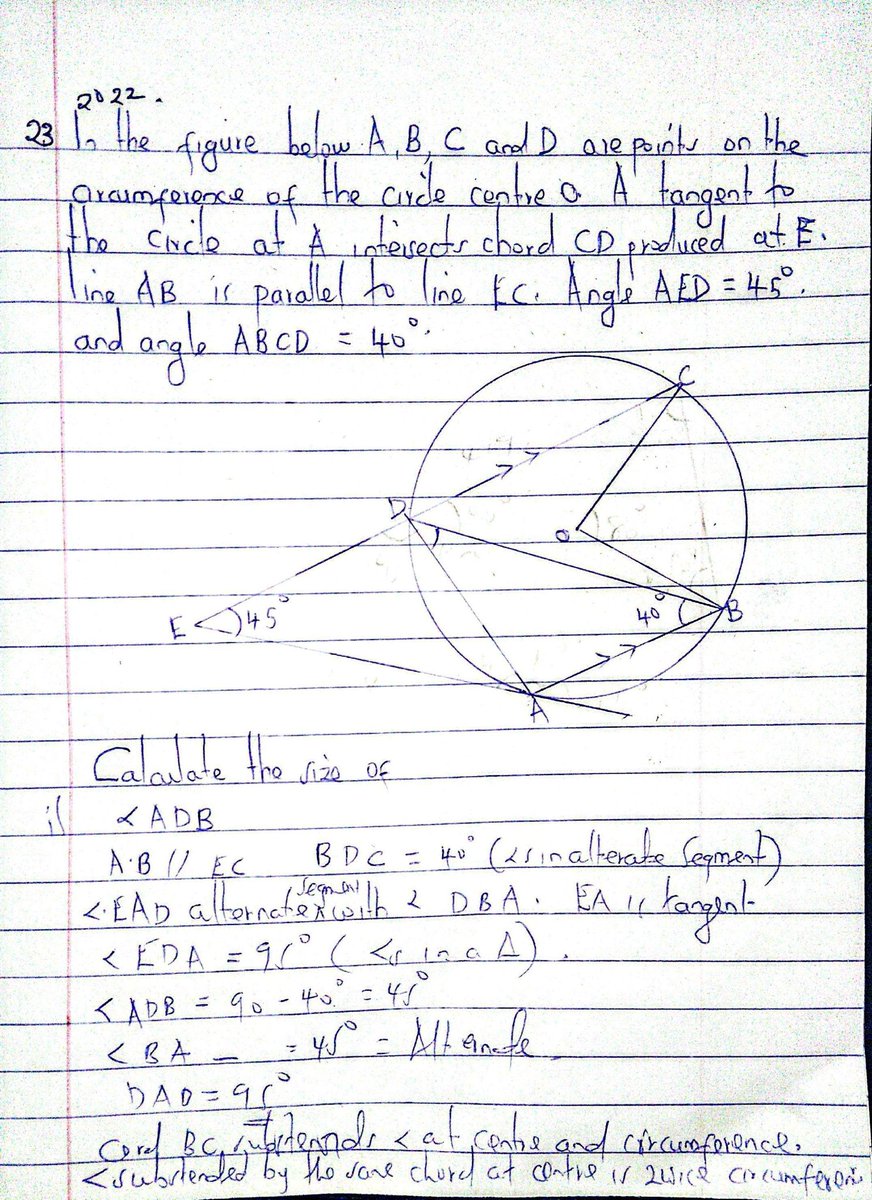 2022.
23 In the figure below A, B, C and D are points on the
circumference of the circle centre O A tangent to
the circle at A intersects chord CD produced at E.
line AB is parallel to line EC. Angle AED = 45°.
and angle ABCD = 40°.
C
D
O
E 45°
40° B
A
Calculate the size of
i) <ADB
A.B // EC BDC = 40° (<s in alterate segment)
segment
<.EAD alternate with < DBA. EA is tangent
< EDA = 95° ( <s in a Δ) .
< ADB = 90 - 40° = 45°
< BA _ = 45° = Alternate
DAD = 95°
Cord BC, substends < at centre and circumference.
< substended by the same chord at centre is twice circumferen